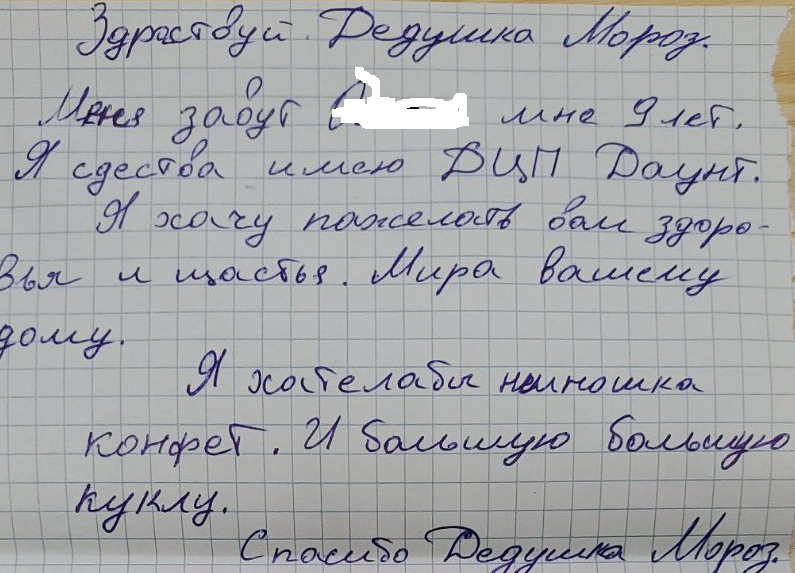 Здраствуй Дедушка Мороз.
Меня завут мне 9 лет.
Я сдества имею ДЦП Даунт.
Я хачу пажелать вам здоро-
вья и щастья. Мира вашему
дому.
Я хателабы
конфет. И большую большую
куклу.
Спасибо Дедушка Мороз.